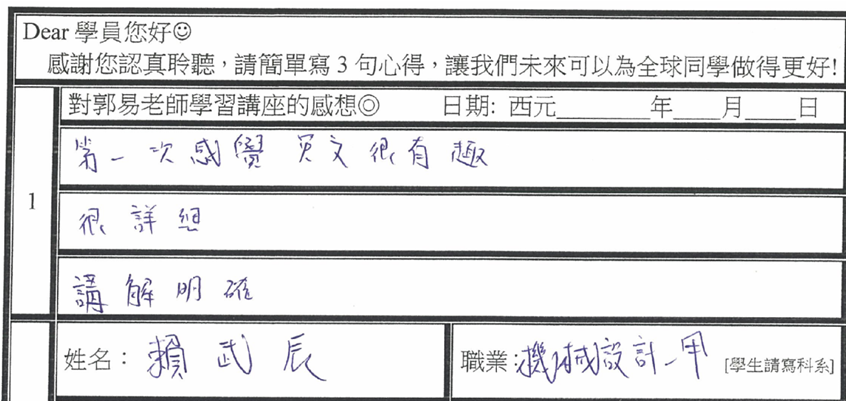 Dear 學員您好☺
感謝您認真聆聽，請簡單寫 3 句心得，讓我們未來可以為全球同學做得更好!
1
對郭易老師學習講座的感想◎ 日期: 西元________年____月____日
第一次感覺英文很有趣
很詳細
講解明確
姓名： 賴武辰 職業： 機械設計一甲 [學生請寫科系]